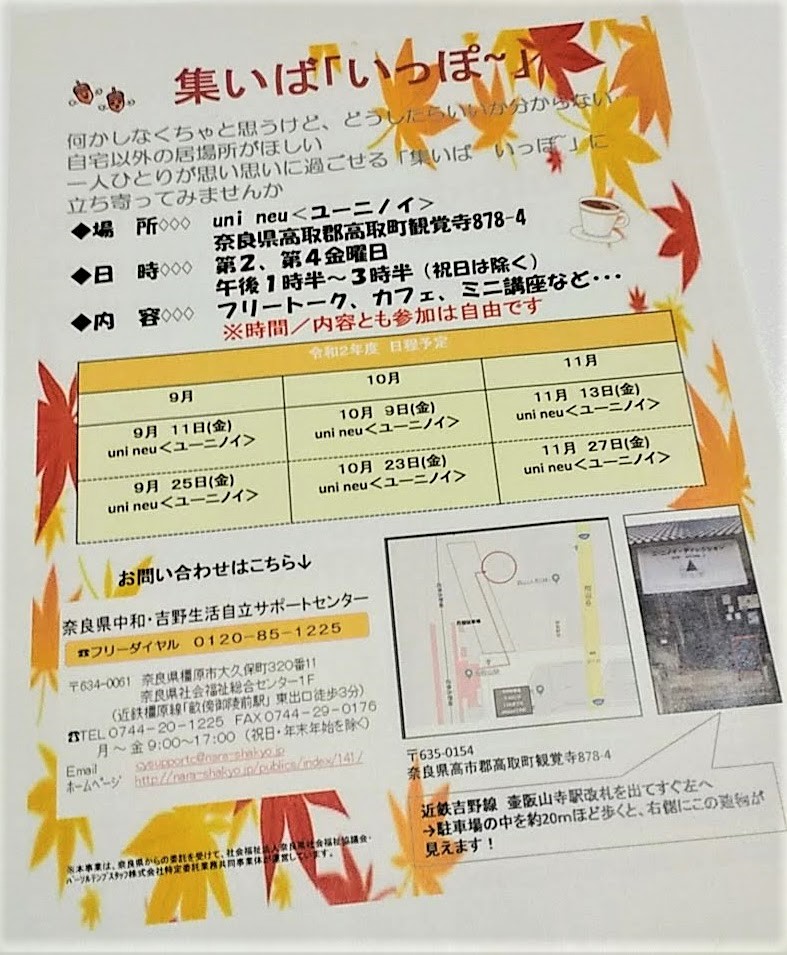 集いば「いっぽ~」
何かしなくちゃと思うけど、どうしたらいいか分からない…
自宅以外の居場所がほしい
一人ひとりが思い思いに過ごせる「集いば　いっぽ~」に
立ち寄ってみませんか
◆場　所◇◇◇　uni neu＜ユーニノイ＞
奈良県高取郡高取町観覚寺878-4
◆日　時◇◇◇　第2、第4金曜日
午後1時半～3時半（祝日は除く）
◆内　容◇◇◇　フリートーク、カフェ、ミニ講座など・・・
※時間／内容とも参加は自由です
令和2年度　日程予定
9月　10月　11月
9月　11日(金)　10月　9日(金)　11月　13日(金)
uni neu＜ユーニノイ＞　uni neu＜ユーニノイ＞　uni neu＜ユーニノイ＞
9月　25日(金)　10月　23日(金)　11月　27日(金)
uni neu＜ユーニノイ＞　uni neu＜ユーニノイ＞　uni neu＜ユーニノイ＞
お問い合わせはこちら↓
奈良県中和・吉野生活自立サポートセンター
☎フリーダイヤル　0120-85-1225
〒634-0061　奈良県橿原市大久保町320番11
奈良県社会福祉総合センター1F
（近鉄橿原線「畝傍御陵前駅」東出口徒歩3分）
☎TEL 0744-20-1225　FAX 0744-29-0176
月～金 9:00～17:00（祝日・年末年始を除く）
Email　cysupportc@nara-shakyo.jp
ホームページ　http://nara-shakyo.jp/publics/index/141/
※本事業は、奈良県からの委託を受けて、社会福祉法人奈良県社会福祉協議会・
パーソルテンプスタッフ株式会社特定委託業務共同事業体が運営しています。
ユーニノイ・ディレクション
〒635-0154
奈良県高市郡高取町観覚寺878-4
近鉄吉野線　壷阪山寺駅改札を出てすぐ左へ
→駐車場の中を約20mほど歩くと、右側にこの建物が
見えます！